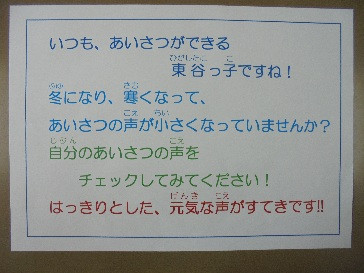 いつも、あいさつができる
東谷っ子ですね！
冬になり、寒くなって、
あいさつの声が小さくなっていませんか？
自分のあいさつの声を
チェックしてみてください！
はっきりとした、元気な声がすてきです!!